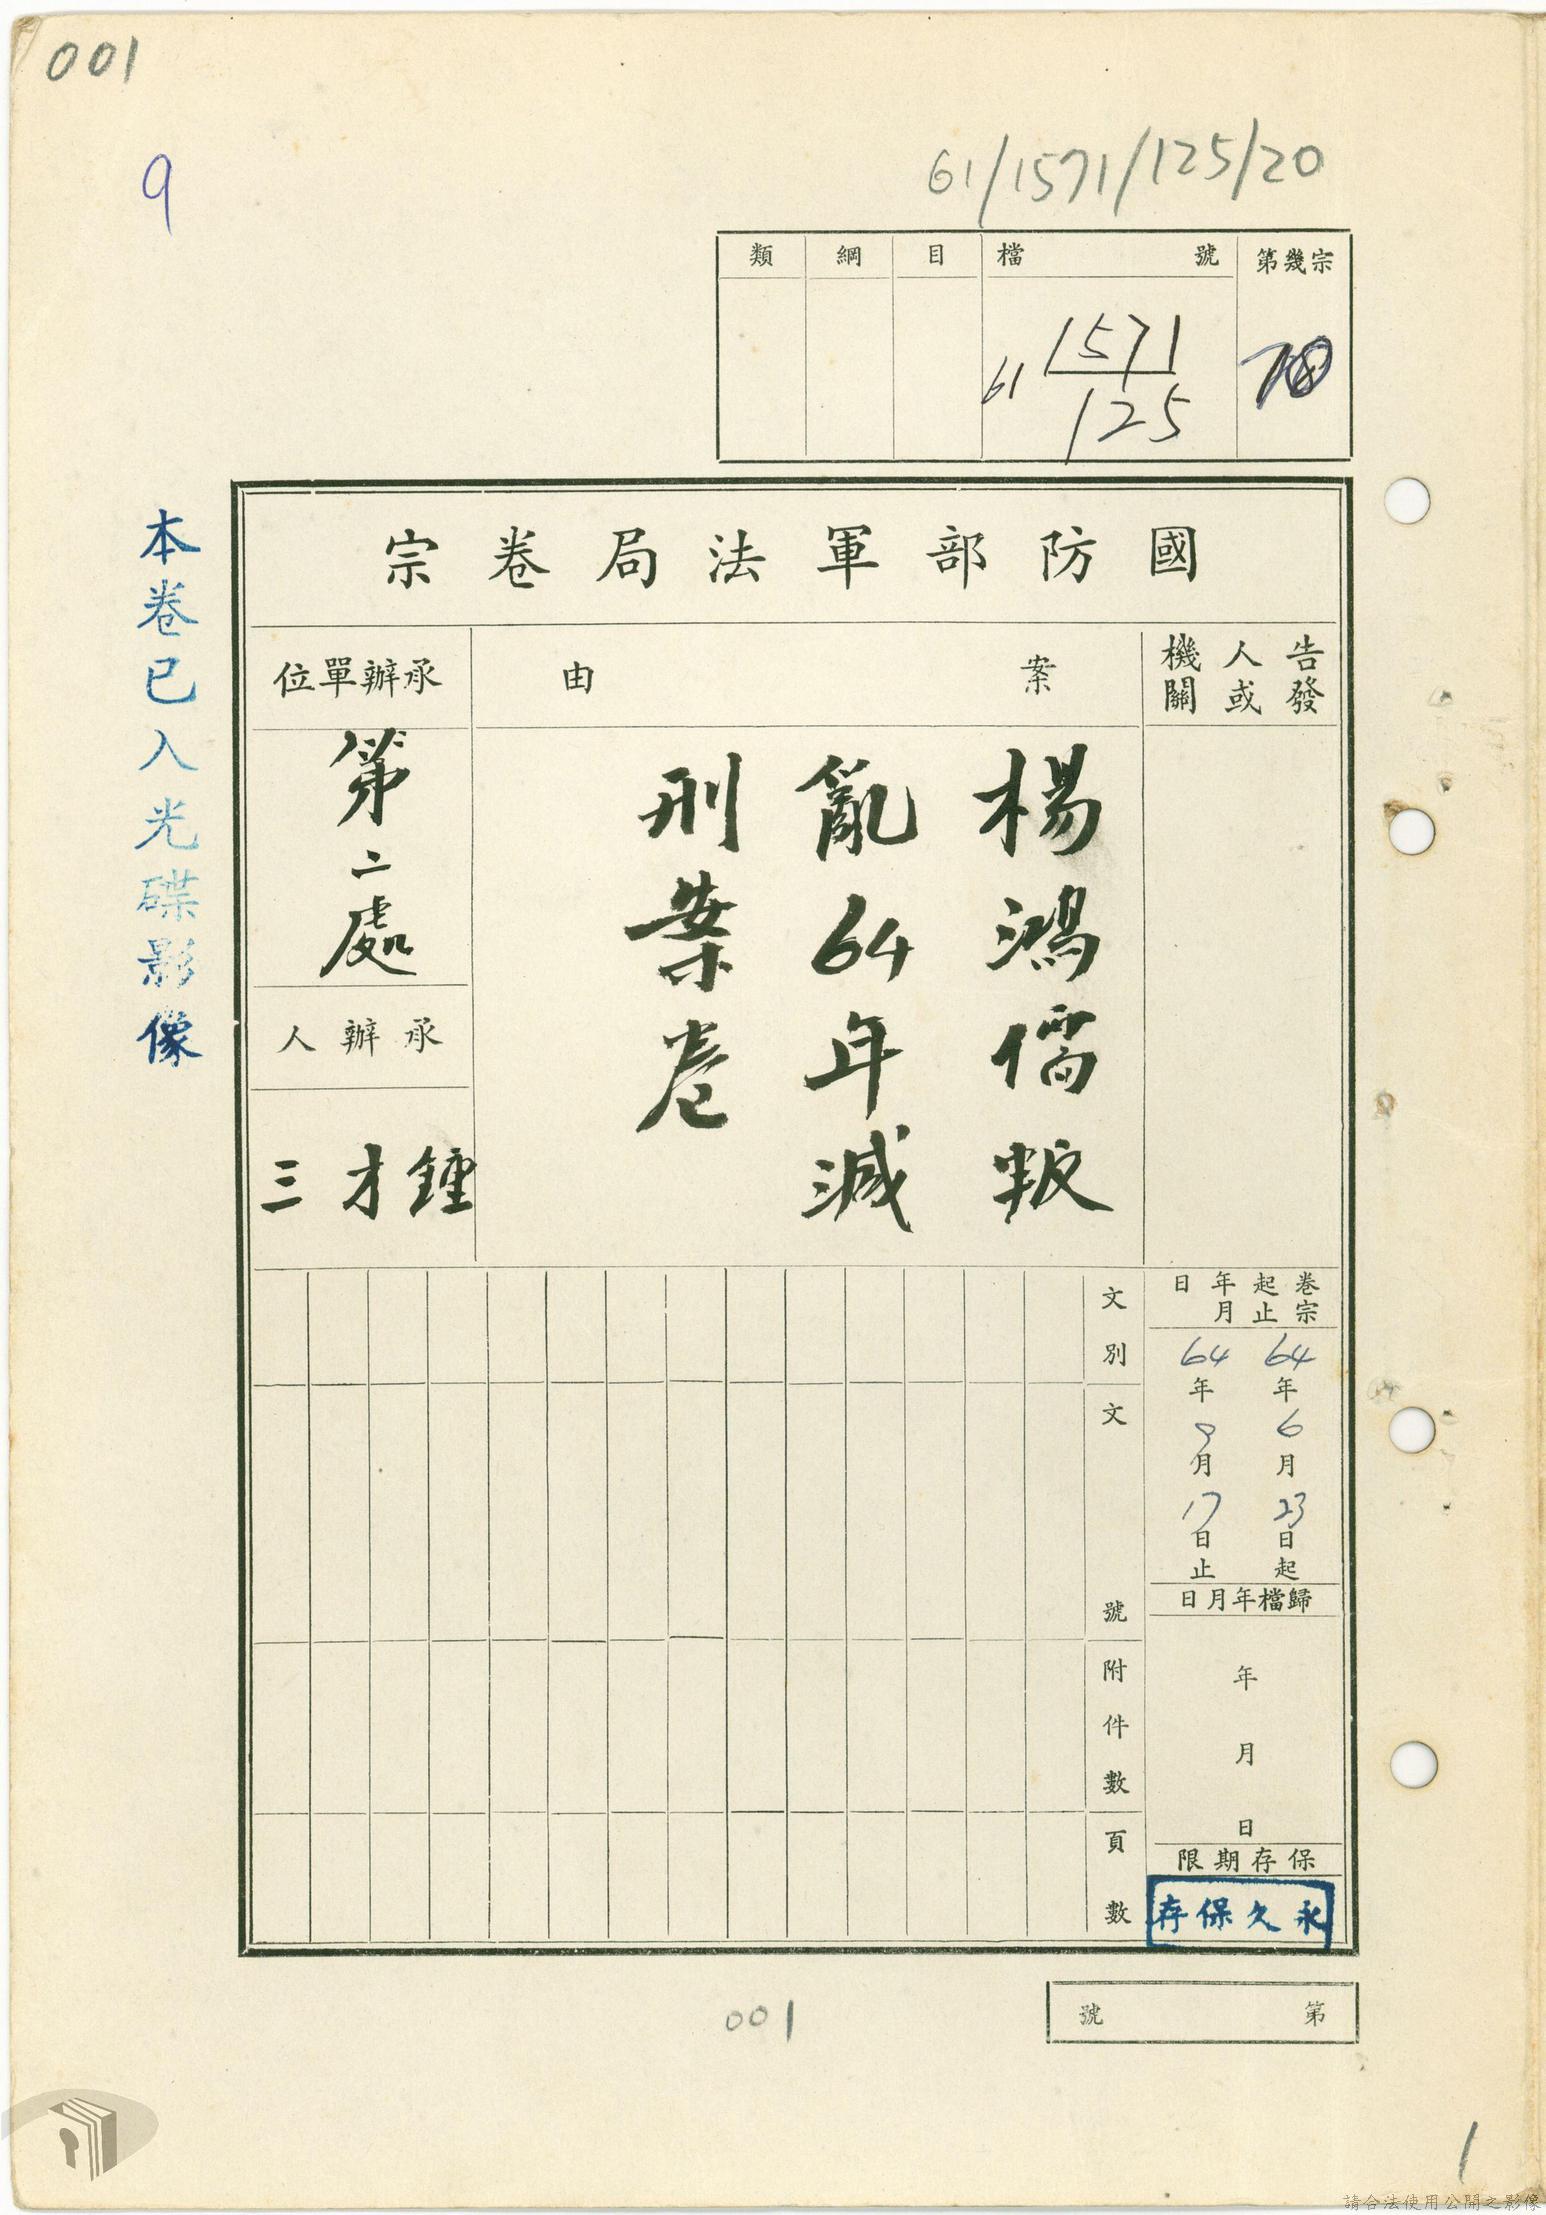 001
9
61/1571/125/20
類 綱 目 檔號 第幾宗
61 1571
125
國防部軍法局卷宗
告發人或機關
案由
承辦單位
楊鴻儒叛
亂64年減
刑案卷
第二處
承辦人
鍾才三
卷宗起止年月日
64年6月23日起
月17日止
64年
歸檔年月日
年月日
保存期限
永久保存
文別
文號
附件數
頁數
本卷已入光碟影像
第號
001
1
請合法使用公開之影像